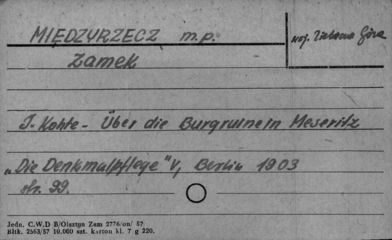 MIĘDZYRZECZ m.p.
woj. Zielona Góra
Zamek
J. Kohte - Über die Burgruine in Meseritz
„Die Denkmalpflege" V, Berlin 1903
str. 99.
Jedn. C.W.D B/Olsztyn Zam 2776/on/ 57
Bltk. 2563/57 10.000 szt. karton kl. 7 g 220.